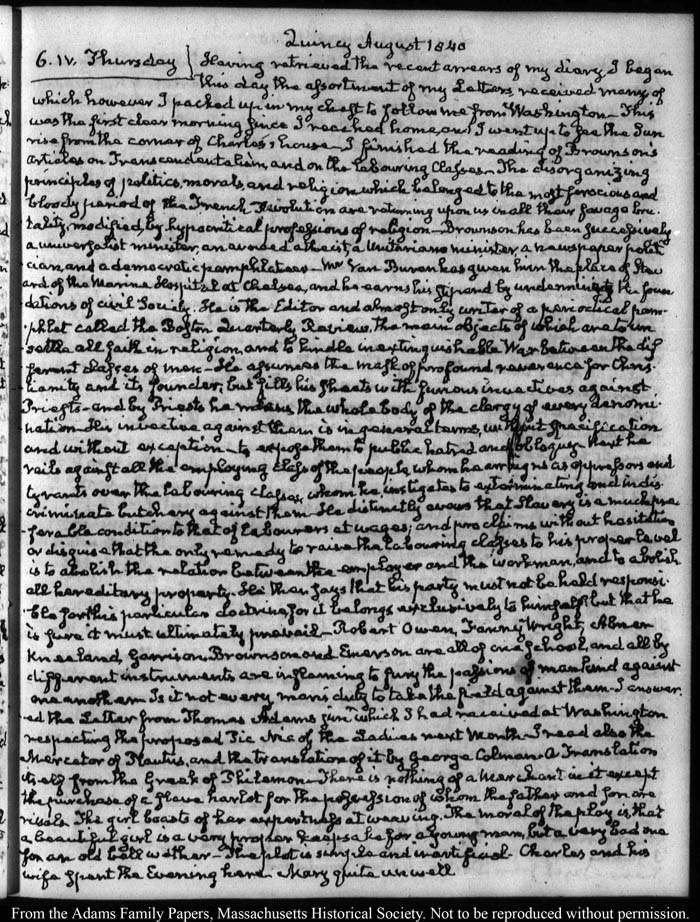 Quincy August 1840
6. IV. Thursday } Having retrieved the recent arrears of my diary, I began
this day the assortment of my Letters, received many of
which however I packed up in my chest to follow me from Washington – This
was the first clear morning since I reached home, and I went up to see the Sun
rise from the corner of Charles's house – I finished the reading of Brownson's
articles on Transcendentalism, and on the Labouring Classes – The disorganizing
principles of politics, morals and religion which belonged to the most ferocious and
bloody period of the French Revolution are returning upon us in all their savage bru
tality, modified, by hypocritical professions of religion – Brownson has been successively
a universalist minister, an avowed atheist, a Unitarian minister, a newspaper polit
ician, and a democratic pamphleteer – Mr Van Buren has given him the place of Stew
ard of the Marine Hospital at Chelsea, and he earns his stipend by undermining the foun
dations of civil Society. He is the Editor and almost only writer of a periodical pam-
phlet called the Boston Quarterly Review, the main objects of which are to un
settle all faith in religion, and to kindle inextinguishable War between the dif
ferent classes of men – He assumes the mask of profound reverence for Chris-
tianity and its founder, but fills his sheets with furious invectives against
Priests – and by Priests he means the whole body of the clergy of every denomi-
nation – His invective against them is in general terms, without specification
and without exception – to expose them to public hatred and obloquy – Next he
rails against all the employing class of the people whom he arraigns as oppressors and
tyrants over the labouring classes, whom he instigates to exterminating and indis-
criminate butchery against them. He distinctly avows that Slavery is a much pre
ferable condition to that of labourers at wages; and proclaims without hesitation
or disguise that the only remedy to raise the labouring classes to his proper level
is to abolish the relation between the employer and the workman, and to abolish
all hereditary property. He then says that his party must not be held responsi-
ble for this particular doctrine, for it belongs exclusively to himself; but that he
is sure it must ultimately prevail – Robert Owen, Fanny Wright, Abner
Kneeland, Garrison, Brownson and Emerson are all of one School, and all by
different instruments are inflaming to fury the passions of mankind against
one another. Is it not every man's duty to take the field against them – I answer-
ed the Letter from Thomas Adams junr which I had received at Washington
respecting the proposed Pic Nic of the Ladies next Month – I read also the
Mercator of Plautus, and the translation of it by George Colman – A Translation
itself from the Greek of Philemon – There is nothing of a Merchant in it except
the purchase of a slave harlot for the possession of whom the father and son are
rivals. The girl boasts of her expertness at weaving. The moral of the play is that
a beautiful girl is a very proper keepsake for a young man, but a very bad one
for an old bell wether – The plot is simple and inartificial – Charles and his
wife spent the Evening here. Mary quite unwell
From the Adams Family Papers, Massachusetts Historical Society. Not to be reproduced without permission.